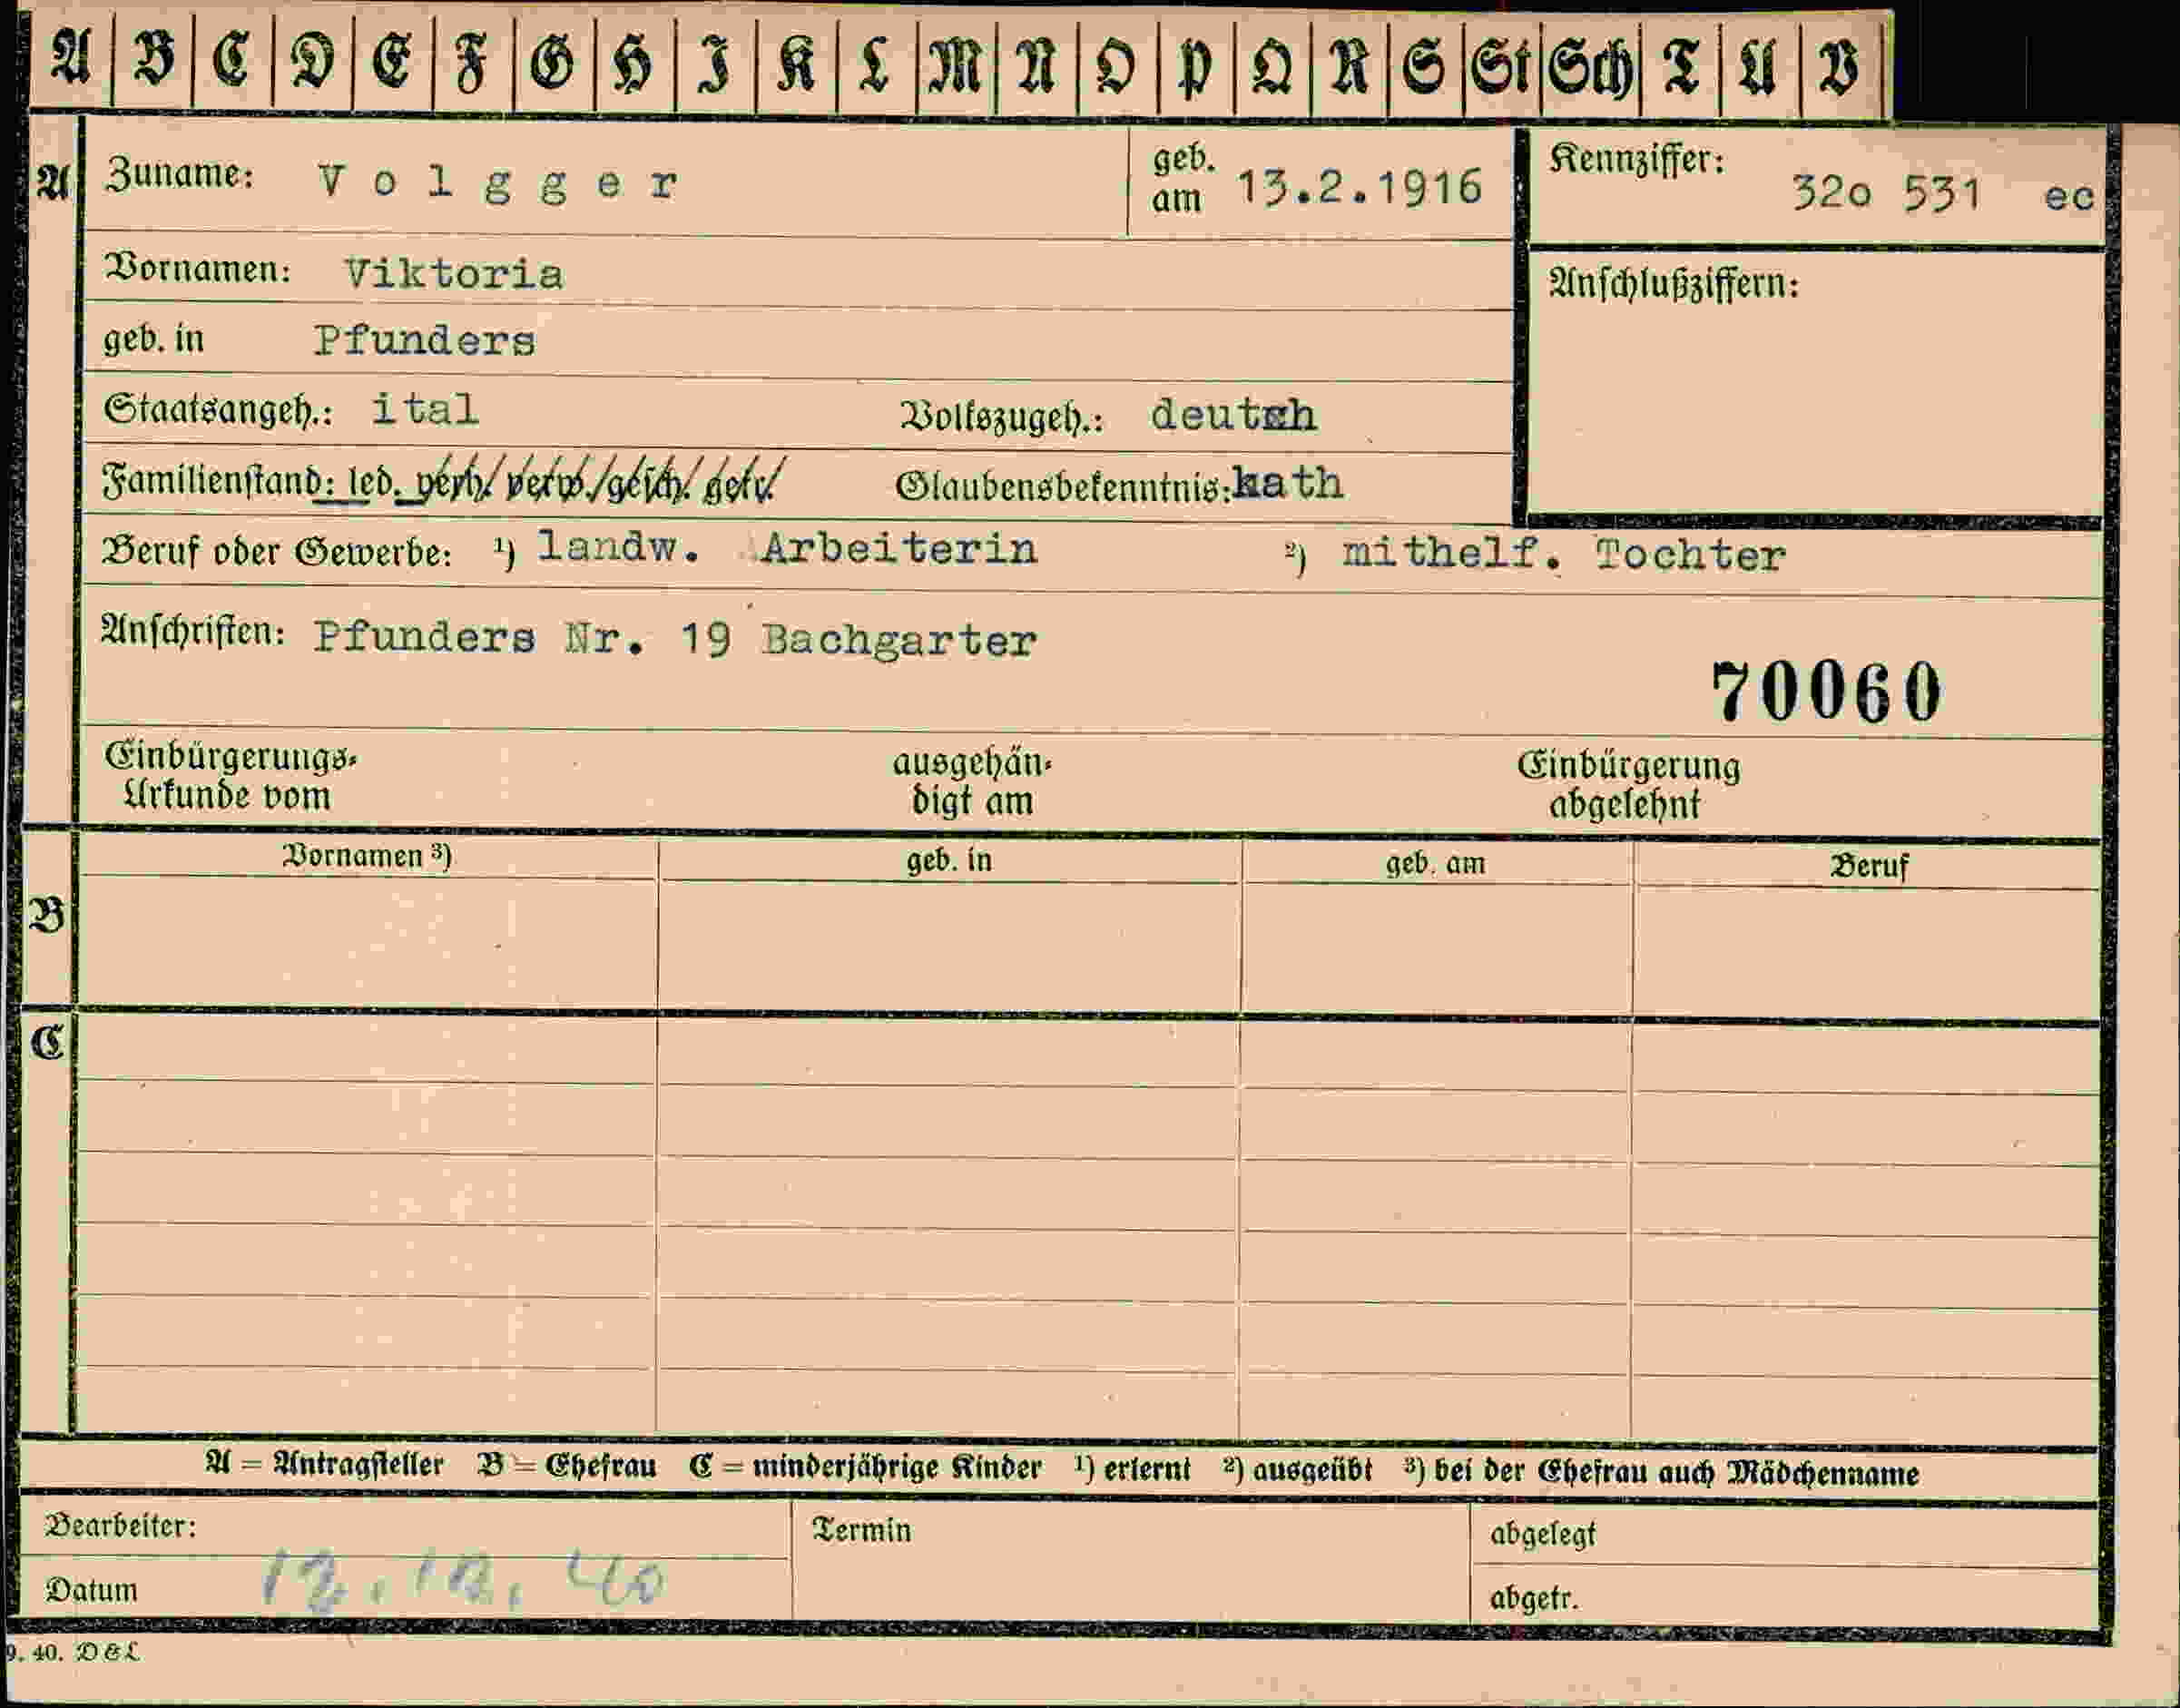 A B C D E F G H I K L M N O P Q R S St Sch T U V
A Zuname: Volgger geb. am 13.2.1916 Kennziffer: 32o 531 ec
Vornamen: Viktoria Anschlußziffern:
geb. in Pfunders
Staatsangeh.: ital Volkszugeh.: deutsh
Familienstand: led. verh./verw./gesch./getr. Glaubensbekenntnis: kath
Beruf oder Gewerbe: ¹) landw. Arbeiterin ²) mithelf. Tochter
Anschriften: Pfunders Nr. 19 Bachgarter
70060
Einbürgerungs-
Urkunde vom
ausgehän-
digt am
Einbürgerung
abgelehnt
Vornamen ³) geb. in geb. am Beruf
B
C
A = Antragsteller B = Ehefrau C = minderjährige Kinder ¹) erlernt ²) ausgeübt ³) bei der Ehefrau auch Mädchenname
Bearbeiter: Termin abgelegt
Datum 12.12.40 abgetr.
9. 40. D & L